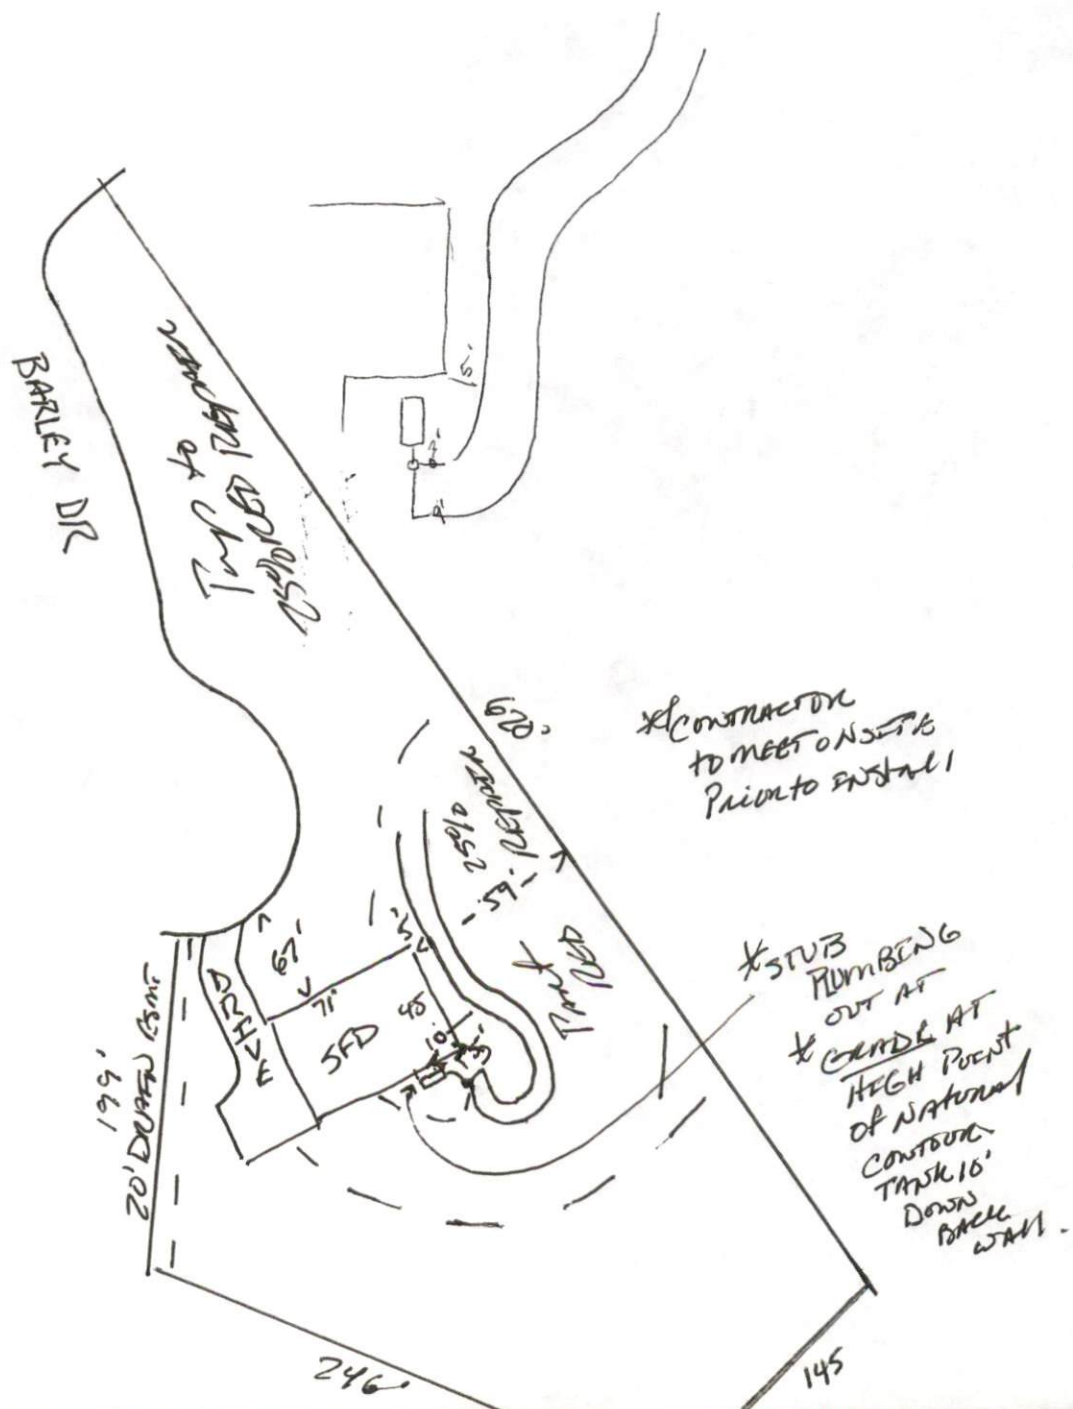 BARLEY DR
620'
*CONTRACTOR
TO MEET ONSITE
PRIOR TO INSTALL
25%
REPAIR
59'
*STUB
PLUMBING
OUT AT
*GRADE AT
HIGH POINT
OF NATURAL
CONTOUR.
TANK 10'
DOWN
BACK
WALL.
5'
2'
9'
67'
71'
SFD
DRIVE
199'
20' DRAIN ESMT
246'
145